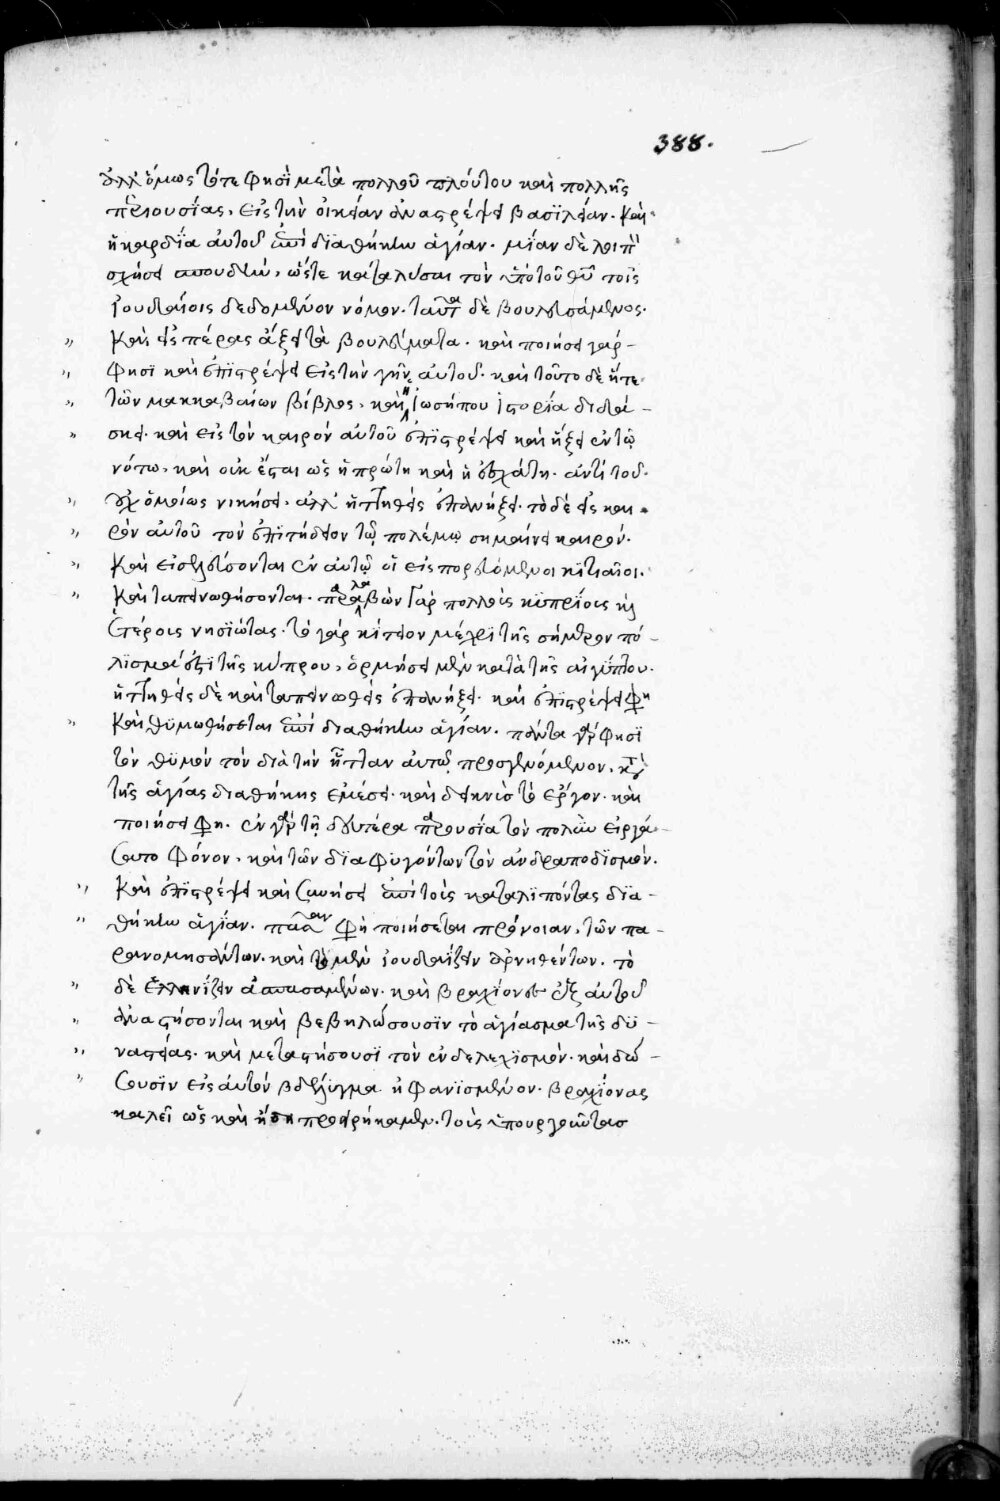 388.
ἀλλ' ὅμως τότε φησὶ μετὰ πολλοῦ πλούτου καὶ πολλῆς
περιουσίας, εἰς τὴν οἰκείαν ἀναστρέψει βασιλείαν. καὶ
ἡ καρδία αὐτοῦ ἐπὶ διαθήκην ἁγίαν. μίαν δὲ λοιπὸν
σχήσει σπουδὴν, ὥστε καταλῦσαι τὸν ὑπὸ τοῦ θῦ τοῖς
ἰουδαίοις δεδομένον νόμον. ταῦτα δὲ βουλευσάμενος.
καὶ εἰς πέρας ἄξει τὰ βουλεύματα. καὶ ποιήσει γάρ
φησι καὶ ἐπιστρέψει εἰς τὴν γῆν αὐτοῦ. καὶ τοῦτο δὲ ἥτε
τῶν μακκαβαίων βίβλος, καὶ ἡ ἰωσήπου ἱστορία διδά-
σκει. καὶ εἰς τὸν καιρὸν αὐτοῦ ἐπιστρέψει καὶ ἥξει ἐν τῷ
νότω, καὶ οὐκ ἔσται ὡς ἡ πρώτη καὶ ἡ ἐσχάτη. ἀντὶ τοῦ.
οὐχ ὁμοίως νικήσει. ἀλλ' ἡττηθεὶς ἐπανήξει. τὸ δὲ εἰς και
ρὸν αὐτοῦ τὸν ἐπιτήδειον τῷ πολέμῳ σημαίνει καιρόν.
καὶ εἰσελεύσονται ἐν αὐτῷ οἱ εἰσπορευόμενοι κίτιαῖοι.
καὶ ταπεινωθήσονται. παραλαβὼν γὰρ πολλοὺς κυπρίους καὶ
ἑτέρους νησιώτας. τὸ γὰρ κίτειον μέχρι τῆς σήμερον πό-
λισμά ἐστι τῆς κύπρου, ὁρμήσει μὲν κατὰ τῆς αἰγύπτου.
ἡττηθεὶς δὲ καὶ ταπεινωθεὶς ἐπανήξει. καὶ ἐπιστρέψει φη
καὶ θυμωθήσεται ἐπὶ διαθήκην ἁγίαν. πάντα γάρ φησι
τὸν θυμὸν τὸν διὰ τὴν ἧτταν αὐτῷ προσγενόμενον, κατὰ
τῆς ἁγίας διαθήκης ἐμέσει. καὶ δεικνὺς τὸ ἔργον. καὶ
ποιήσει φη. ἐν γὰρ τῇ δευτέρα παρουσία τὸν πολὺν εἰργά-
σατο φόνον, καὶ τῶν διαφυγόντων τὸν ἀνδραποδισμόν.
καὶ ἐπιστρέψει καὶ συνήσει ἐπὶ τοὺς καταλιπόντας δια-
θήκην ἁγίαν. πᾶσαν φη ποιήσεται πρόνοιαν, τῶν πα-
ρανομησάντων. καὶ τὸ μὲν ἰουδαΐζειν ἀρνηθέντων. τὸ
δὲ ἑλληνίζειν ἀσπασαμένων. καὶ βραχίονες ἐξ αὐτοῦ
ἀναστήσονται καὶ βεβηλώσουσιν τὸ ἁγίασμα τῆς δυ-
ναστείας. καὶ μεταστήσουσι τὸν ἐνδελεχισμόν. καὶ δώ-
σουσιν εἰς αὐτὸν βδέλυγμα ἠφανισμένον. βραχίονας
καλεῖ ὡς καὶ ἤδη προειρήκαμεν. τοὺς ὑπουργοῦντασ